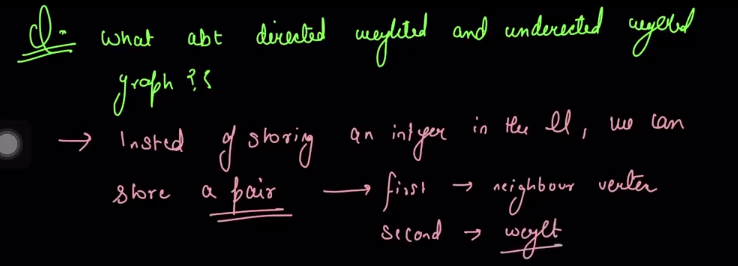 Q- What abt directed weighted and undirected weighted
graph ??
→ Insted of storing an integer in the ll, we can
store a pair → first → neighbour vertex
second → weight